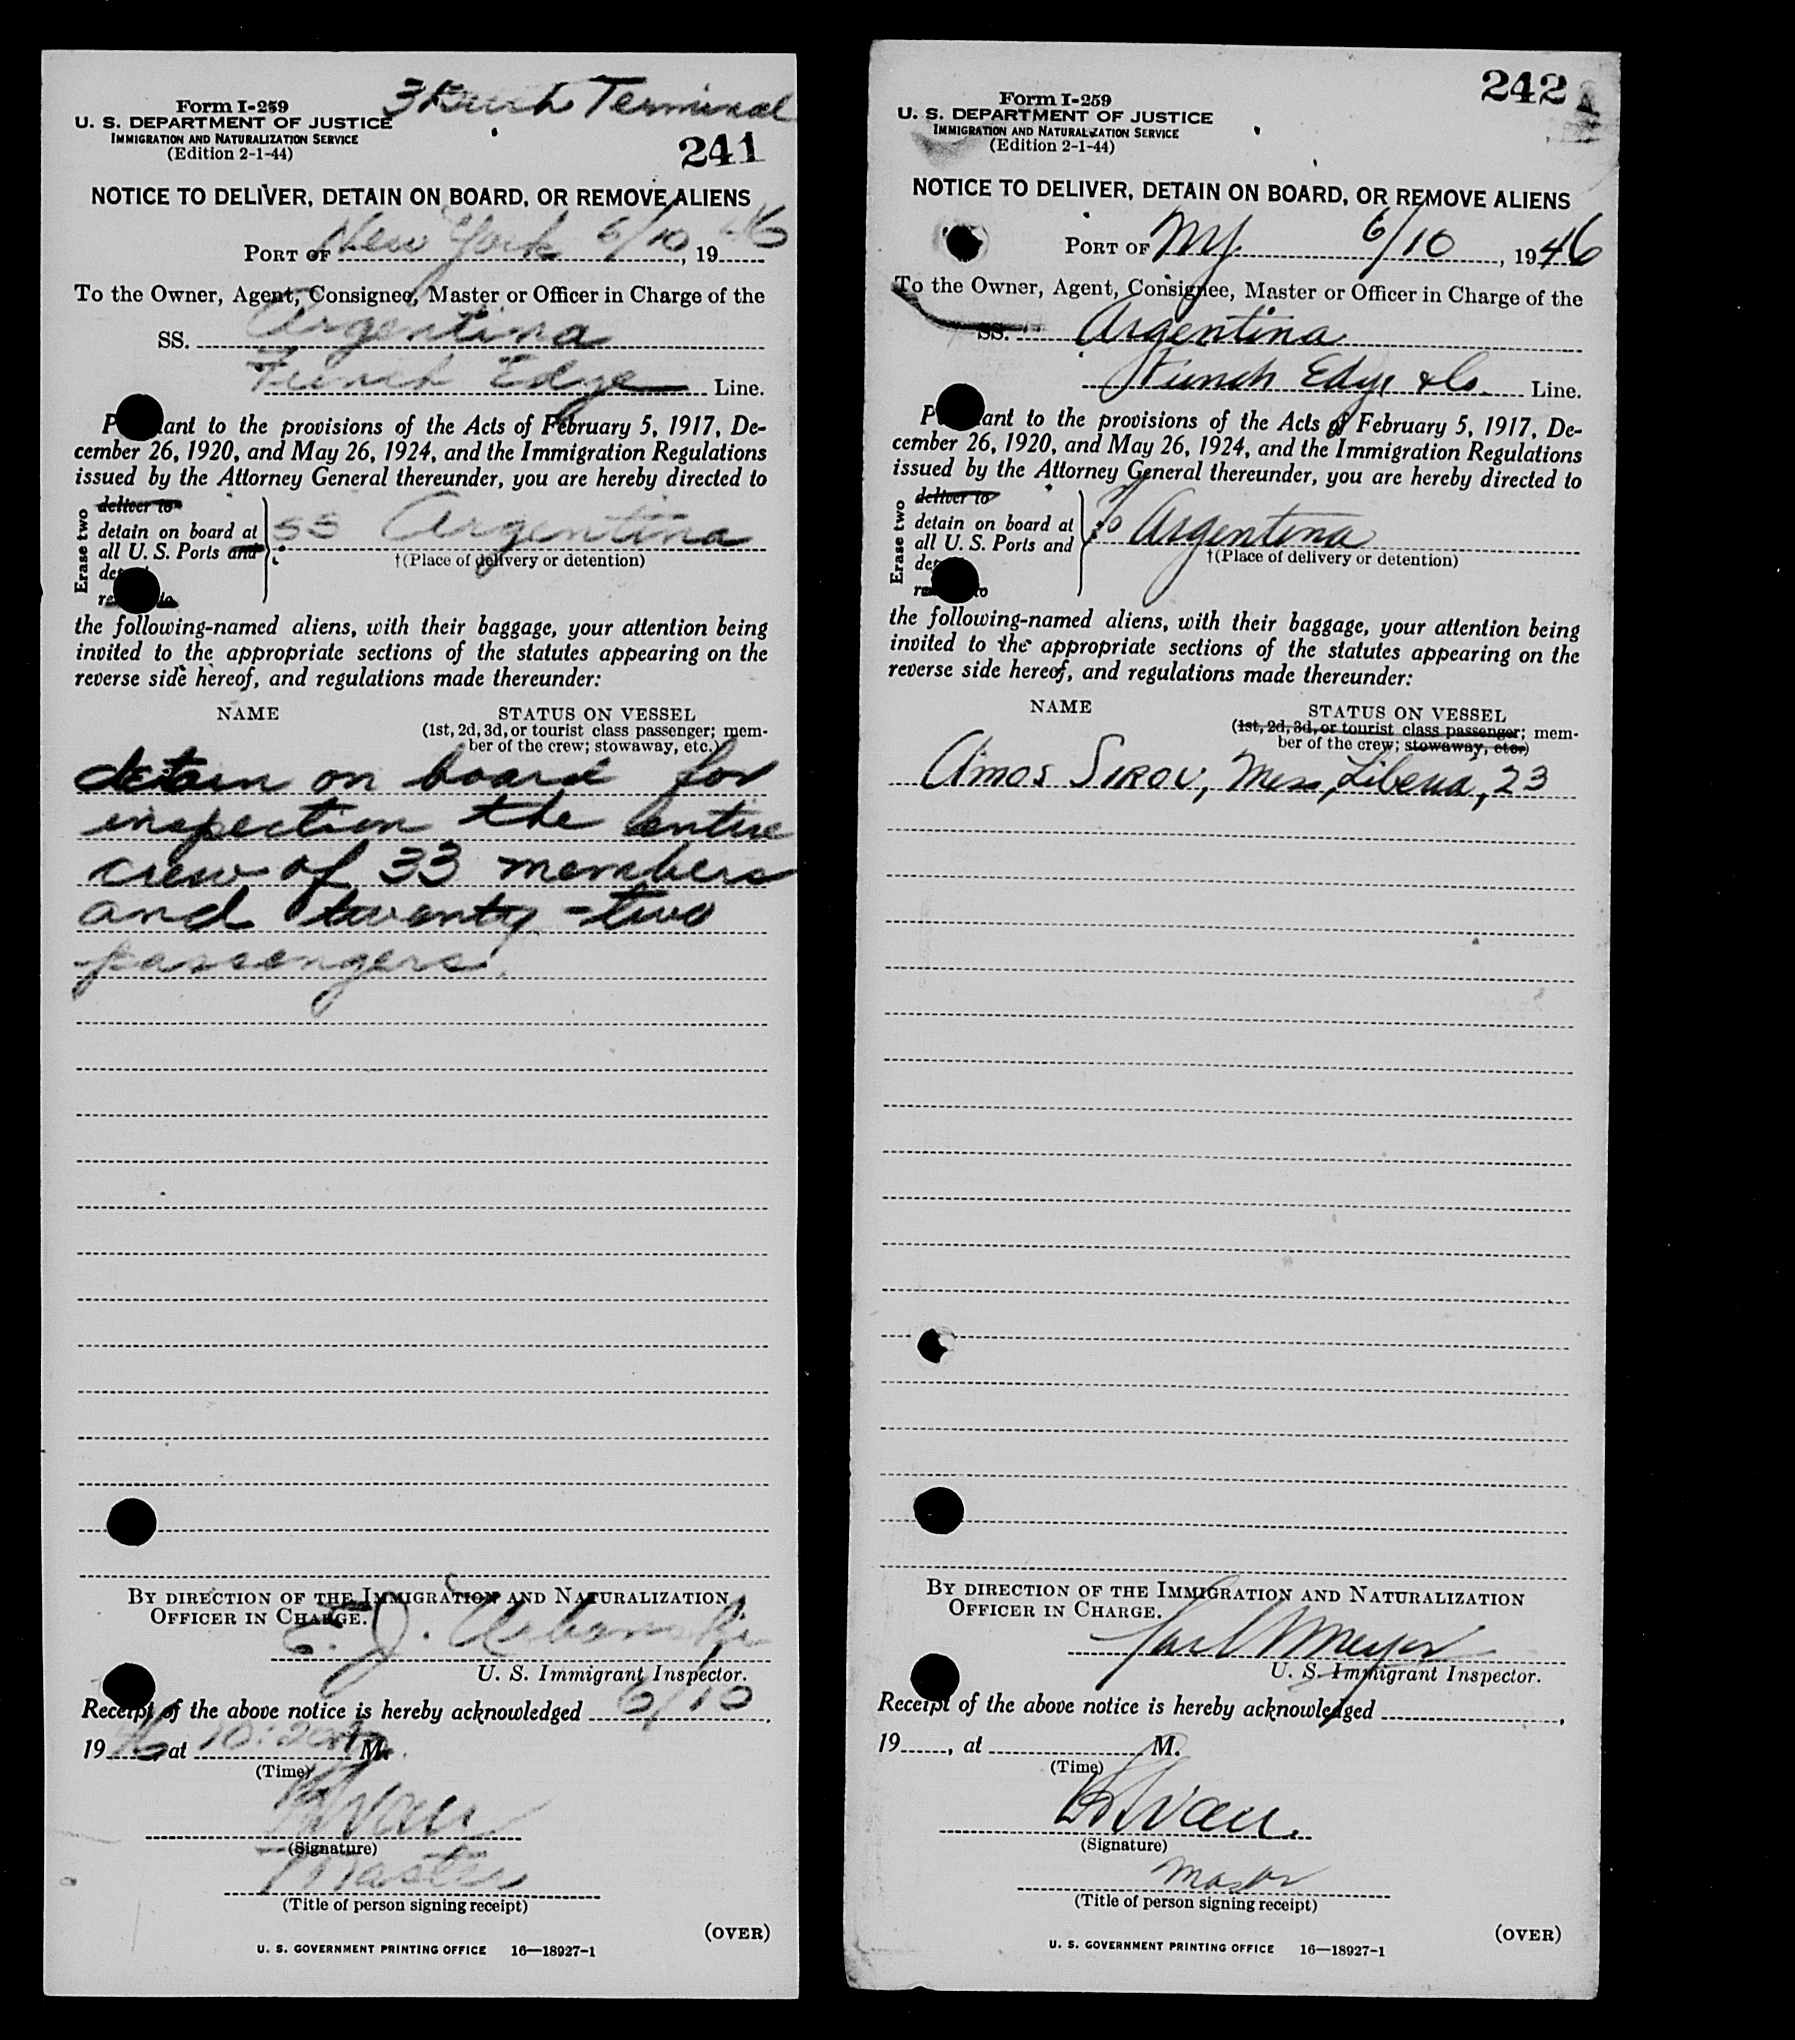 3 Bush Terminal
Form I-259
U. S. DEPARTMENT OF JUSTICE
IMMIGRATION AND NATURALIZATION SERVICE
(Edition 2-1-44)
241
NOTICE TO DELIVER, DETAIN ON BOARD, OR REMOVE ALIENS
PORT OF New York 6/10, 1946
To the Owner, Agent, Consignee, Master or Officer in Charge of the
SS. Argentina
Funch Edye Line.
P ant to the provisions of the Acts of February 5, 1917, De-
cember 26, 1920, and May 26, 1924, and the Immigration Regulations
issued by the Attorney General thereunder, you are hereby directed to
Erase two
deliver to
detain on board at
all U. S. Ports and
SS Argentina
†(Place of delivery or detention)
the following-named aliens, with their baggage, your attention being
invited to the appropriate sections of the statutes appearing on the
reverse side hereof, and regulations made thereunder:
NAME STATUS ON VESSEL
(1st, 2d, 3d, or tourist class passenger; mem-
ber of the crew; stowaway, etc.)
detain on board for
inspection the entire
crew of 33 members
and twenty-two
passengers.
BY DIRECTION OF THE IMMIGRATION AND NATURALIZATION
OFFICER IN CHARGE.
E. J. Urbanski
U. S. Immigrant Inspector.
Receipt of the above notice is hereby acknowledged 6/10,
1946, at 10:20 A M.
(Time)
(Signature)
Master
(Title of person signing receipt)
(OVER)
U. S. GOVERNMENT PRINTING OFFICE 16—18927-1
242
Form I-259
U. S. DEPARTMENT OF JUSTICE
IMMIGRATION AND NATURALIZATION SERVICE
(Edition 2-1-44)
NOTICE TO DELIVER, DETAIN ON BOARD, OR REMOVE ALIENS
PORT OF NY. 6/10, 1946
To the Owner, Agent, Consignee, Master or Officer in Charge of the
SS. Argentina
Funch Edye & Co. Line.
P ant to the provisions of the Acts of February 5, 1917, De-
cember 26, 1920, and May 26, 1924, and the Immigration Regulations
issued by the Attorney General thereunder, you are hereby directed to
Erase two
deliver to
detain on board at
all U. S. Ports and
Argentina
†(Place of delivery or detention)
the following-named aliens, with their baggage, your attention being
invited to the appropriate sections of the statutes appearing on the
reverse side hereof, and regulations made thereunder:
NAME STATUS ON VESSEL
(1st, 2d, 3d, or tourist class passenger; mem-
ber of the crew; stowaway, etc.)
Amos SIROU, Mess, Liberia, 23
BY DIRECTION OF THE IMMIGRATION AND NATURALIZATION
OFFICER IN CHARGE.
Karl Meyer
U. S. Immigrant Inspector.
Receipt of the above notice is hereby acknowledged ,
19 , at M.
(Time)
(Signature)
Master
(Title of person signing receipt)
(OVER)
U. S. GOVERNMENT PRINTING OFFICE 16—18927-1